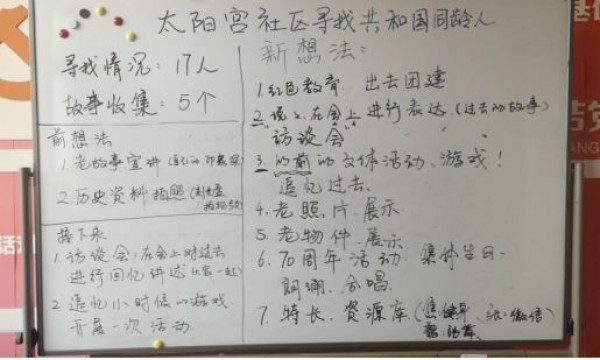 太阳宫社区寻找共和国同龄人
寻找情况：17人
故事收集：5个
前想法
1.老故事宣讲
2.历史资料拍照
接下来
1.访谈会，在会上对过去
进行回忆讲述
2.追忆小时候的游戏
开展一次活动
新想法：
1.红色教育 出去团建
2. 在会上 进行表达（过去的故事）
访谈会
3.以前的文体活动、游戏！
追忆过去、
4.老照片.展示
5.老物件.展示
6.70周年活动 集体生日、
朗诵、合唱.
7.特长、资源库